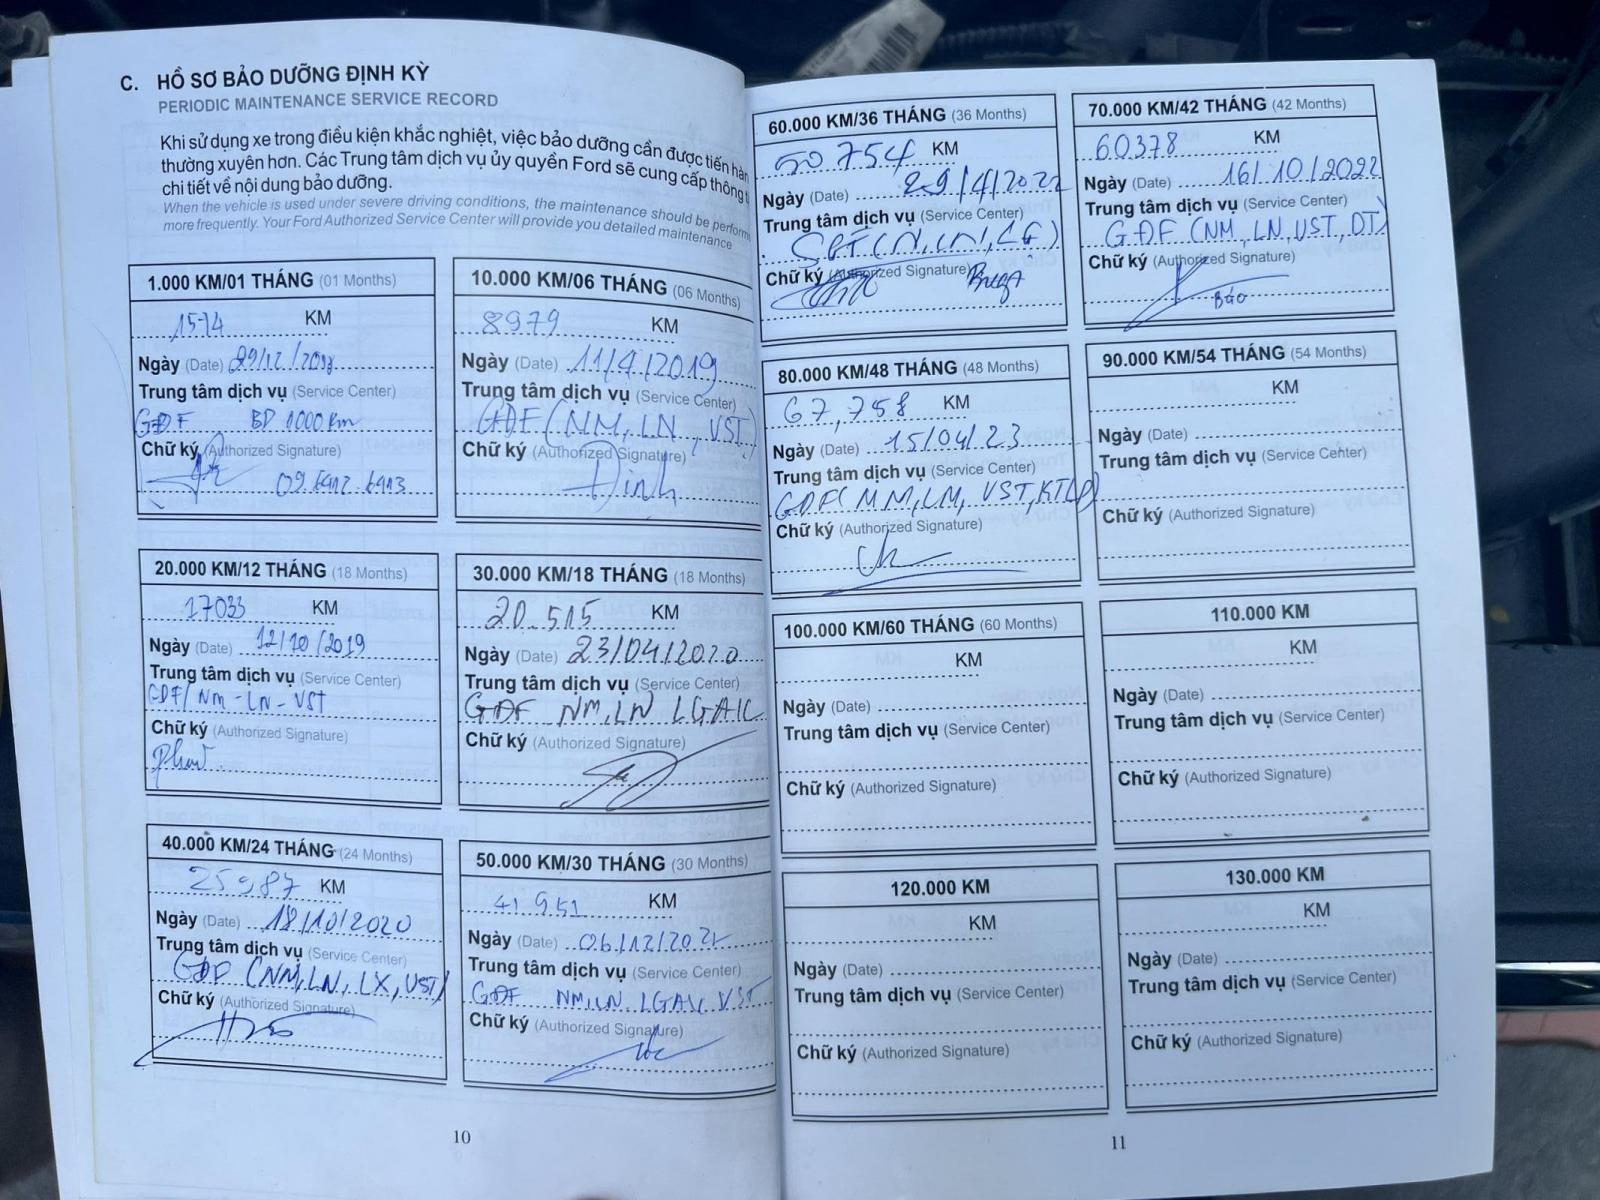 C. HỒ SƠ BẢO DƯỠNG ĐỊNH KỲ
PERIODIC MAINTENANCE SERVICE RECORD
Khi sử dụng xe trong điều kiện khắc nghiệt, việc bảo dưỡng cần được tiến hàn
thường xuyên hơn. Các Trung tâm dịch vụ ủy quyền Ford sẽ cung cấp thông t
chi tiết về nội dung bảo dưỡng.
When the vehicle is used under severe driving conditions, the maintenance should be perform
more frequently. Your Ford Authorized Service Center will provide you detailed maintenance
1.000 KM/01 THÁNG (01 Months)
1574 KM
Ngày (Date) 29/12/2018
Trung tâm dịch vụ (Service Center)
GĐF BD 1000 Km
Chữ ký (Authorized Signature)
10.000 KM/06 THÁNG (06 Months)
8979 KM
Ngày (Date) 11/4/2019
Trung tâm dịch vụ (Service Center)
GĐF (NM, LN, VST)
Chữ ký (Authorized Signature)
Định
20.000 KM/12 THÁNG (18 Months)
17033 KM
Ngày (Date) 12/10/2019
Trung tâm dịch vụ (Service Center)
GDF/ NM - LN - VST
Chữ ký (Authorized Signature)
30.000 KM/18 THÁNG (18 Months)
20.515 KM
Ngày (Date) 23/04/2020
Trung tâm dịch vụ (Service Center)
GĐF NM, LN LGA/C
Chữ ký (Authorized Signature)
40.000 KM/24 THÁNG (24 Months)
25987 KM
Ngày (Date) 18/10/2020
Trung tâm dịch vụ (Service Center)
(NM, LN, LX, VST)
Chữ ký (Authorized Signature)
50.000 KM/30 THÁNG (30 Months)
41951 KM
Ngày (Date)
Trung tâm dịch vụ (Service Center)
GĐF NM, LN LGA/C, VST
Chữ ký (Authorized Signature)
10
60.000 KM/36 THÁNG (36 Months)
50754 KM
Ngày (Date) 29/4/2022
Trung tâm dịch vụ (Service Center)
Chữ ký (Authorized Signature)
70.000 KM/42 THÁNG (42 Months)
60378 KM
Ngày (Date) 16/10/2022
Trung tâm dịch vụ (Service Center)
GĐF (NM, LN, VST, DT)
Chữ ký (Authorized Signature)
Bảo
80.000 KM/48 THÁNG (48 Months)
67,758 KM
Ngày (Date) 15/04/23
Trung tâm dịch vụ (Service Center)
Chữ ký (Authorized Signature)
90.000 KM/54 THÁNG (54 Months)
KM
Ngày (Date)
Trung tâm dịch vụ (Service Center)
Chữ ký (Authorized Signature)
100.000 KM/60 THÁNG (60 Months)
KM
Ngày (Date)
Trung tâm dịch vụ (Service Center)
Chữ ký (Authorized Signature)
110.000 KM
KM
Ngày (Date)
Trung tâm dịch vụ (Service Center)
Chữ ký (Authorized Signature)
120.000 KM
KM
Ngày (Date)
Trung tâm dịch vụ (Service Center)
Chữ ký (Authorized Signature)
130.000 KM
KM
Ngày (Date)
Trung tâm dịch vụ (Service Center)
Chữ ký (Authorized Signature)
11